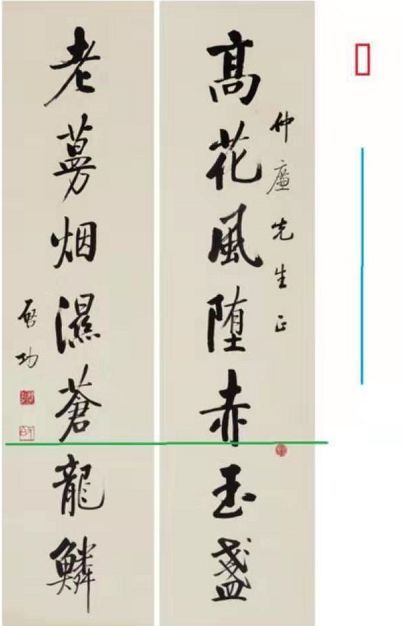 仲廬先生正
髙花風堕赤玉盞
老蔓烟濕蒼龍鱗
啓功